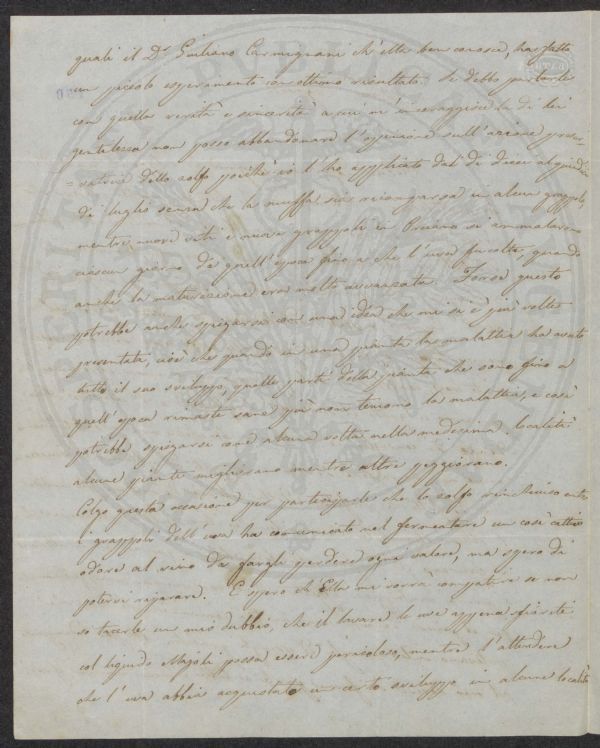 quali il Dr Giuliano Carmignani ch'ella ben conosce, ha fatto
un piccolo esperimento con ottimo risultato. Le debbo per tanto
con quella verità e sincerità a cui m'incoraggisce la di lei
gentilezza non posso abbandonare l'opinione sull'azione preser-
=vatrice dello zolfo poichè io l'ho applicato dal dì dieci al quindici
di luglio senza che la muffa sia ricomparsa in alcun grappolo,
mentre nuove viti e nuovi grappoli in si ammalarono
ciascun giorno da quell'epoca fino a che l'uva fu colta, quando
anche la maturazione era molto avanzata. Forse questo
potrebbe anche spiegarsi con una idea che mi si è più volte
presentata, cioè che quando in una pianta la malattia ha avuto
tutto il suo sviluppo, quelle parti della pianta che sono fino a
quell'epoca rimaste sane più non temono la malattia, e così
potrebbe spiegarsi come alcuna volta nella medesima località
alcune piante migliorano mentre altre peggiorano.
Colgo questa occasione per parteciparle che lo zolfo rinchiuso entro
i grappoli dell'uva ha comunicato nel fermentare un così cattivo
odore al vino da fargli perdere ogni valore, ma spero di
potervi riparare. E spero ch'Ella mi vorrà compatire se non
so tacerle un mio dubbio, che il lavare le uve appena sfiorite
col liquido Majoli possa essere pericoloso, mentre l'attendere
che l'uva abbia acquistato un certo sviluppo in alcune località